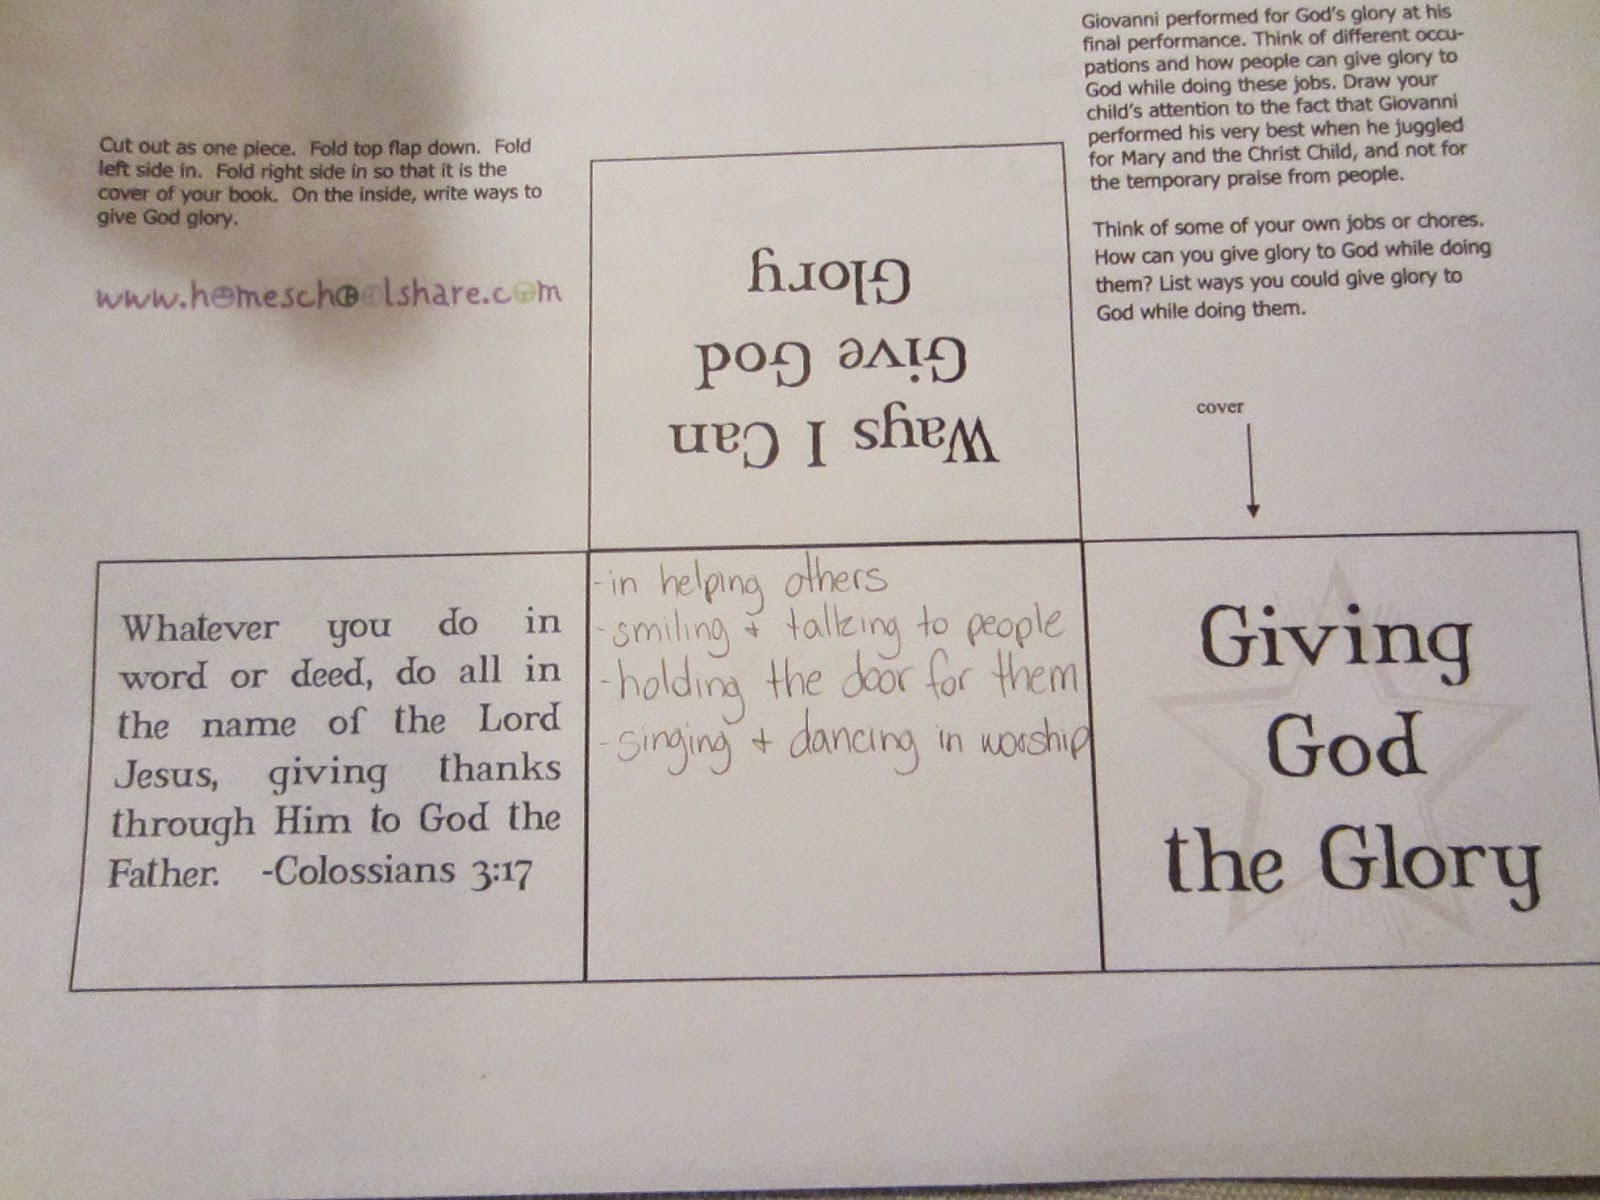 Cut out as one piece. Fold top flap down. Fold
left side in. Fold right side in so that it is the
cover of your book. On the inside, write ways to
give God glory.
www.homeschoolshare.com
Ways I Can
Give God
Glory
Giovanni performed for God's glory at his
final performance. Think of different occu-
pations and how people can give glory to
God while doing these jobs. Draw your
child's attention to the fact that Giovanni
performed his very best when he juggled
for Mary and the Christ Child, and not for
the temporary praise from people.
Think of some of your own jobs or chores.
How can you give glory to God while doing
them? List ways you could give glory to
God while doing them.
cover
Whatever you do in
word or deed, do all in
the name of the Lord
Jesus, giving thanks
through Him to God the
Father. -Colossians 3:17
-in helping others
-smiling + talking to people
-holding the door for them
-singing + dancing in worship
Giving
God
the Glory